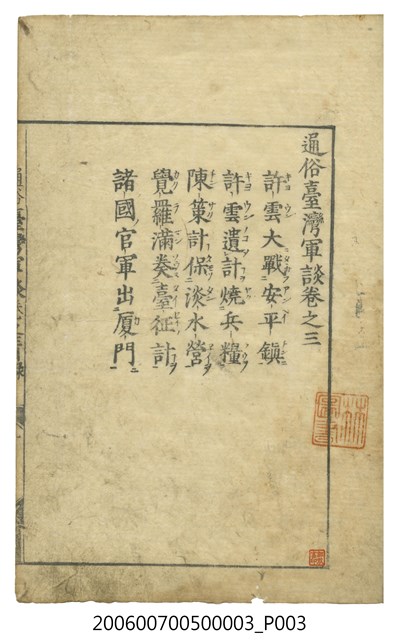 通俗臺灣軍談卷之三
許雲大戰安平鎮
許雲遺計燒兵糧
陳策計保淡水營
覺羅滿奏臺征計
諸國官軍出厦門
200600700500003_P003